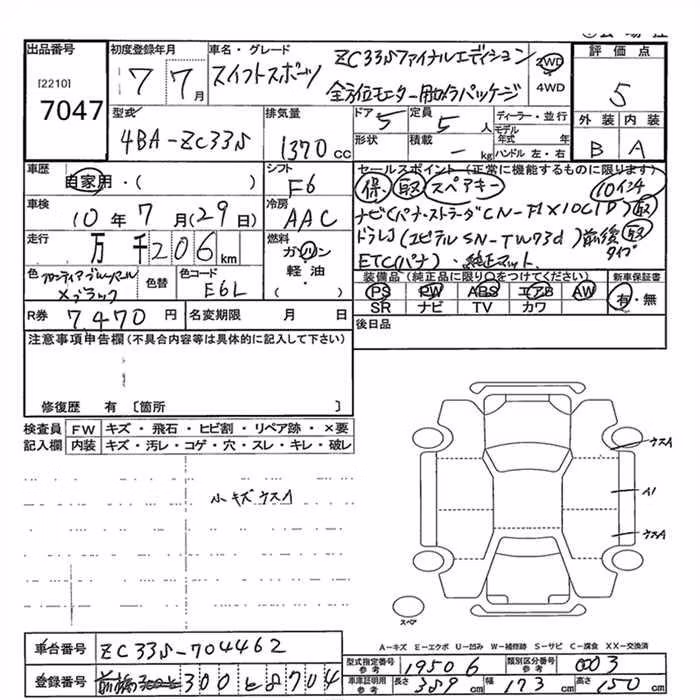 出品番号 初度登録年月 車名・グレード ZC33Sファイナルエディション 2WD 評価点
[2210] 7047 7 7月 スイフトスポーツ 全方位モニター用カメラパッケージ 4WD 5
型式 4BA-ZC33S 排気量 1370cc ドア 5 定員 5人 ディーラー・並行 外装 内装
形状 積載 -kg モデル年式 年 ハンドル 左・右 B A
車歴 自家用・( ) シフト F6 セールスポイント(正常に機能するものに限ります)
保 取 スペアキー 10インチ
車検 10年7月(29日) 冷房 AAC ナビ(パナ・ストラーダCN-F1X10C1D)取
走行 万千206km 燃料 ガソリン・軽油・( ) ドラレコ(ユピテルSN-TW73d)前後タイプ 取
ETC(パナ)・純正マット
色 フロンティアブルーパール×ブラック 色替 色コード E6L 装備品(純正品に限り○をつけてください) 新車保証書
PS PW ABS エアB AW 有・無
SR ナビ TV カワ
R券 7,470円 名変期限 月 日 後日品
注意事項申告欄(不具合内容等は具体的に記入して下さい)
修復歴 有〔箇所 〕
検査員 FW キズ・飛石・ヒビ割・リペア跡・×要
記入欄 内装 キズ・汚レ・コゲ・穴・スレ・キレ・破レ
小キズウスA
ウスA
A1
ウスA
スペア
A-キズ E-エクボ U-凹み W-補修跡 S-サビ C-腐食 XX-交換済
車台番号 ZC33S-704462
型式指定番号 参考 19506 類別区分番号 参考 0003
登録番号 300 8704
車庫証明用 参考 長さ 389cm 幅 173cm 高さ 150cm